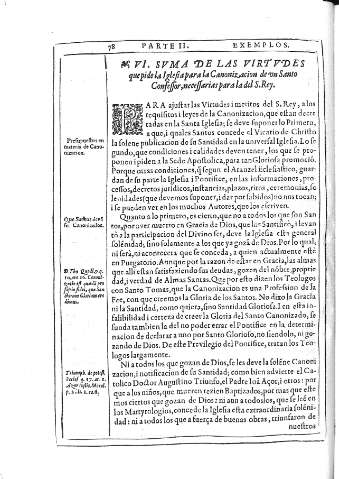 78 PARTE II. EXEMPLOS.
VI. SVMA DE LAS VIRTVDES
que pide la Iglesia para la Canonizacion de un Santo
Confessor, necessarias para la del S. Rey.
PARA ajustar las Virtudes i meritos del S. Rey, a los
requisitos i leyes de la Canonizacion, que estan decre
tadas en la Santa Iglesia; se deve suponer lo Primero,
a que, i quales Santos concede el Vicario de Christo
la solene publicacion de su Santidad en la universal Iglesia. Lo se
gundo, que condiciones i calidades deven tener, los que se pro
ponen i piden a la Sede Apostolica, para tan Gloriosa promociõ.
Porque estas condiciones, q̃ segun el Aranzel Eclesiastico, guar
dan de su parte la Iglesia i Pontifice, en las informaciones, pro
cessos, decretos juridicos, instancias, plazos, ritos, ceremonias, se
lenidades (que devemos suponer, i dar por sabidos) no nos tocan;
i se pueden ver en los muchos Autores, que los escriven.
Quanto a lo primero, es cierto, que no a todos los que son San
tos, por aver muerto en Gracia de Dios, que la Santificò, i levan
tò a la participacion del Divino ser, deve la Iglesia esta general
solénidad, sino solamente a los que ya gozã de Dios. Por lo qual,
ni serà, ni acontecerà que se conceda, a quien actualmente estè
en Purgatorio. Aunque por la razon de estar en Gracia, las almas
que alli estan satisfaziendo sus deudas, gozen del nõbre, proprie
dad, i verdad de Almas Santas. Que por esto dizen los Teologos
con Santo Tomas, que la Canonizacion es una Profession de la
Fee, con que creemos la Gloria de los Santos. No dize la Gracia
ni la Santidad, como quiera, sino Santidad Gloriosa. I en esta in
falibilidad i certeza de creer la Gloria del Santo Canonizado, se
funda tambien la del no poder errar el Pontifice en la determi
nacion de declarar a uno por Santo Glorioso, no siendolo, ni go
zando de Dios. De este Previlegio del Pontifice, tratan los Teo
logos largamente.
Ni a todos los que gozan de Dios, se les deve la solène Canoni
zacion, i notificacion de su Santidad; como bien advierte el Ca
tolico Doctor Augustino Triunfo, el Padre i otros: por
que a los niños, que mueren rezien Baptizados, por mas que este
mos ciertos que gozan de Dios; ni aun a todos los, que se leé en
los Martyrologios, concede la Iglesia esta extraordinaria solèni
dad: ni a todos los que a fuerça de buenas obras, triunfaron de
nuestros
Presupuestos en
materia de Cano
nizacion.
Que Santos devẽ
ser Canonizados.